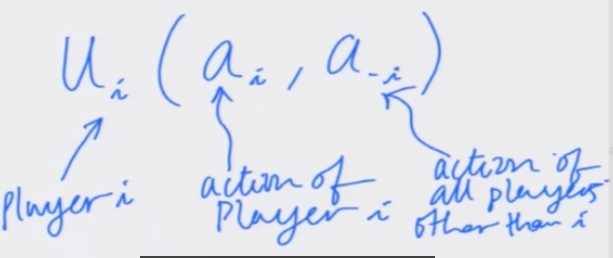 u_i (a_i, a_-i)
player i
action of
Player i
action of
all players
other than i